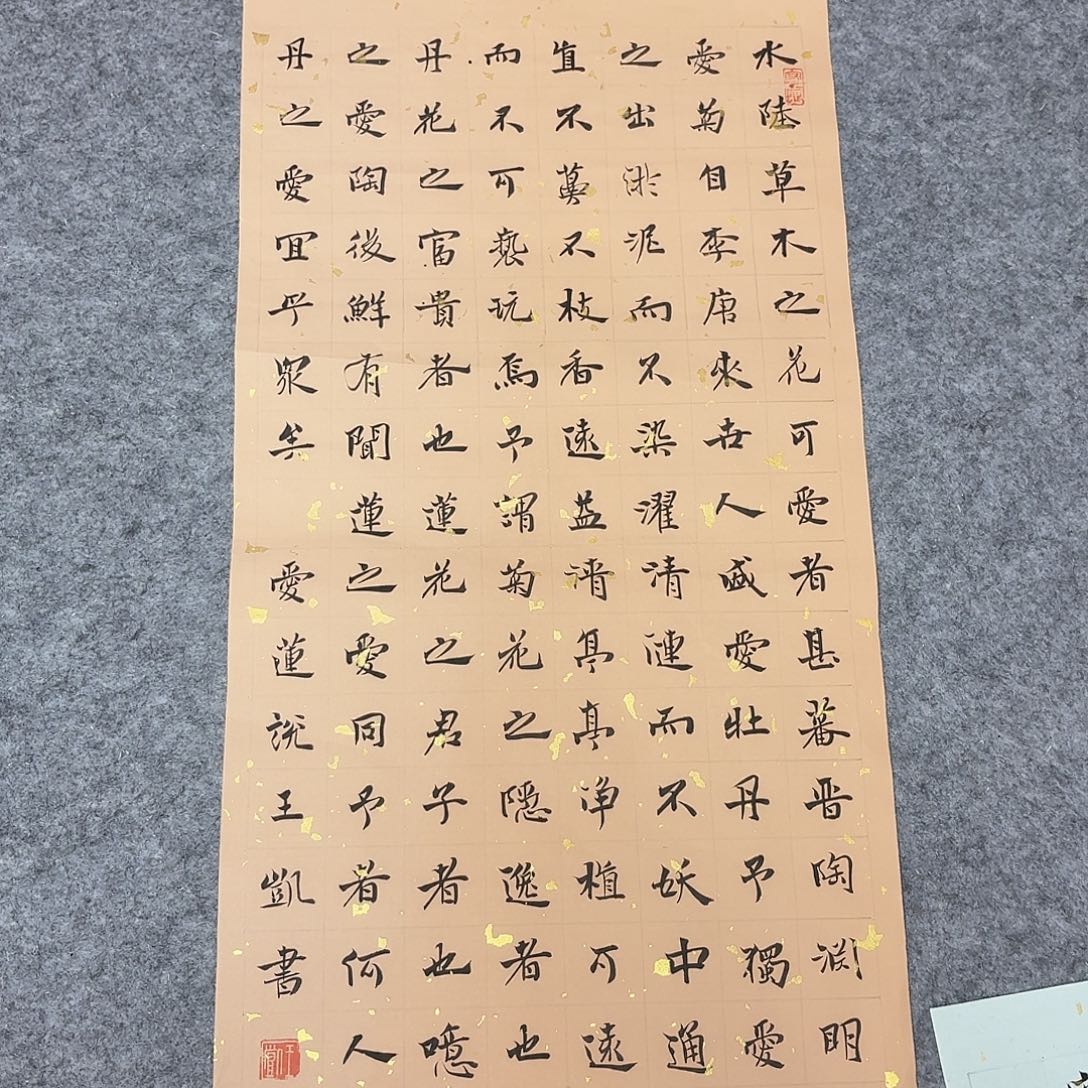 水陸草木之花可愛者甚蕃晋陶渊明
愛菊自李唐來世人盛愛牡丹予獨愛
之出淤泥而不染濯清漣而不妖中通
直不蔓不枝香遠益清亭亭净植可遠
而不可褻玩焉予謂菊花之隱逸者也
丹花之富貴者也蓮花之君子者也噫
之愛陶後鮮有聞蓮之愛同予者何人
丹之愛宜乎眾矣 愛蓮説王凱書
王凱